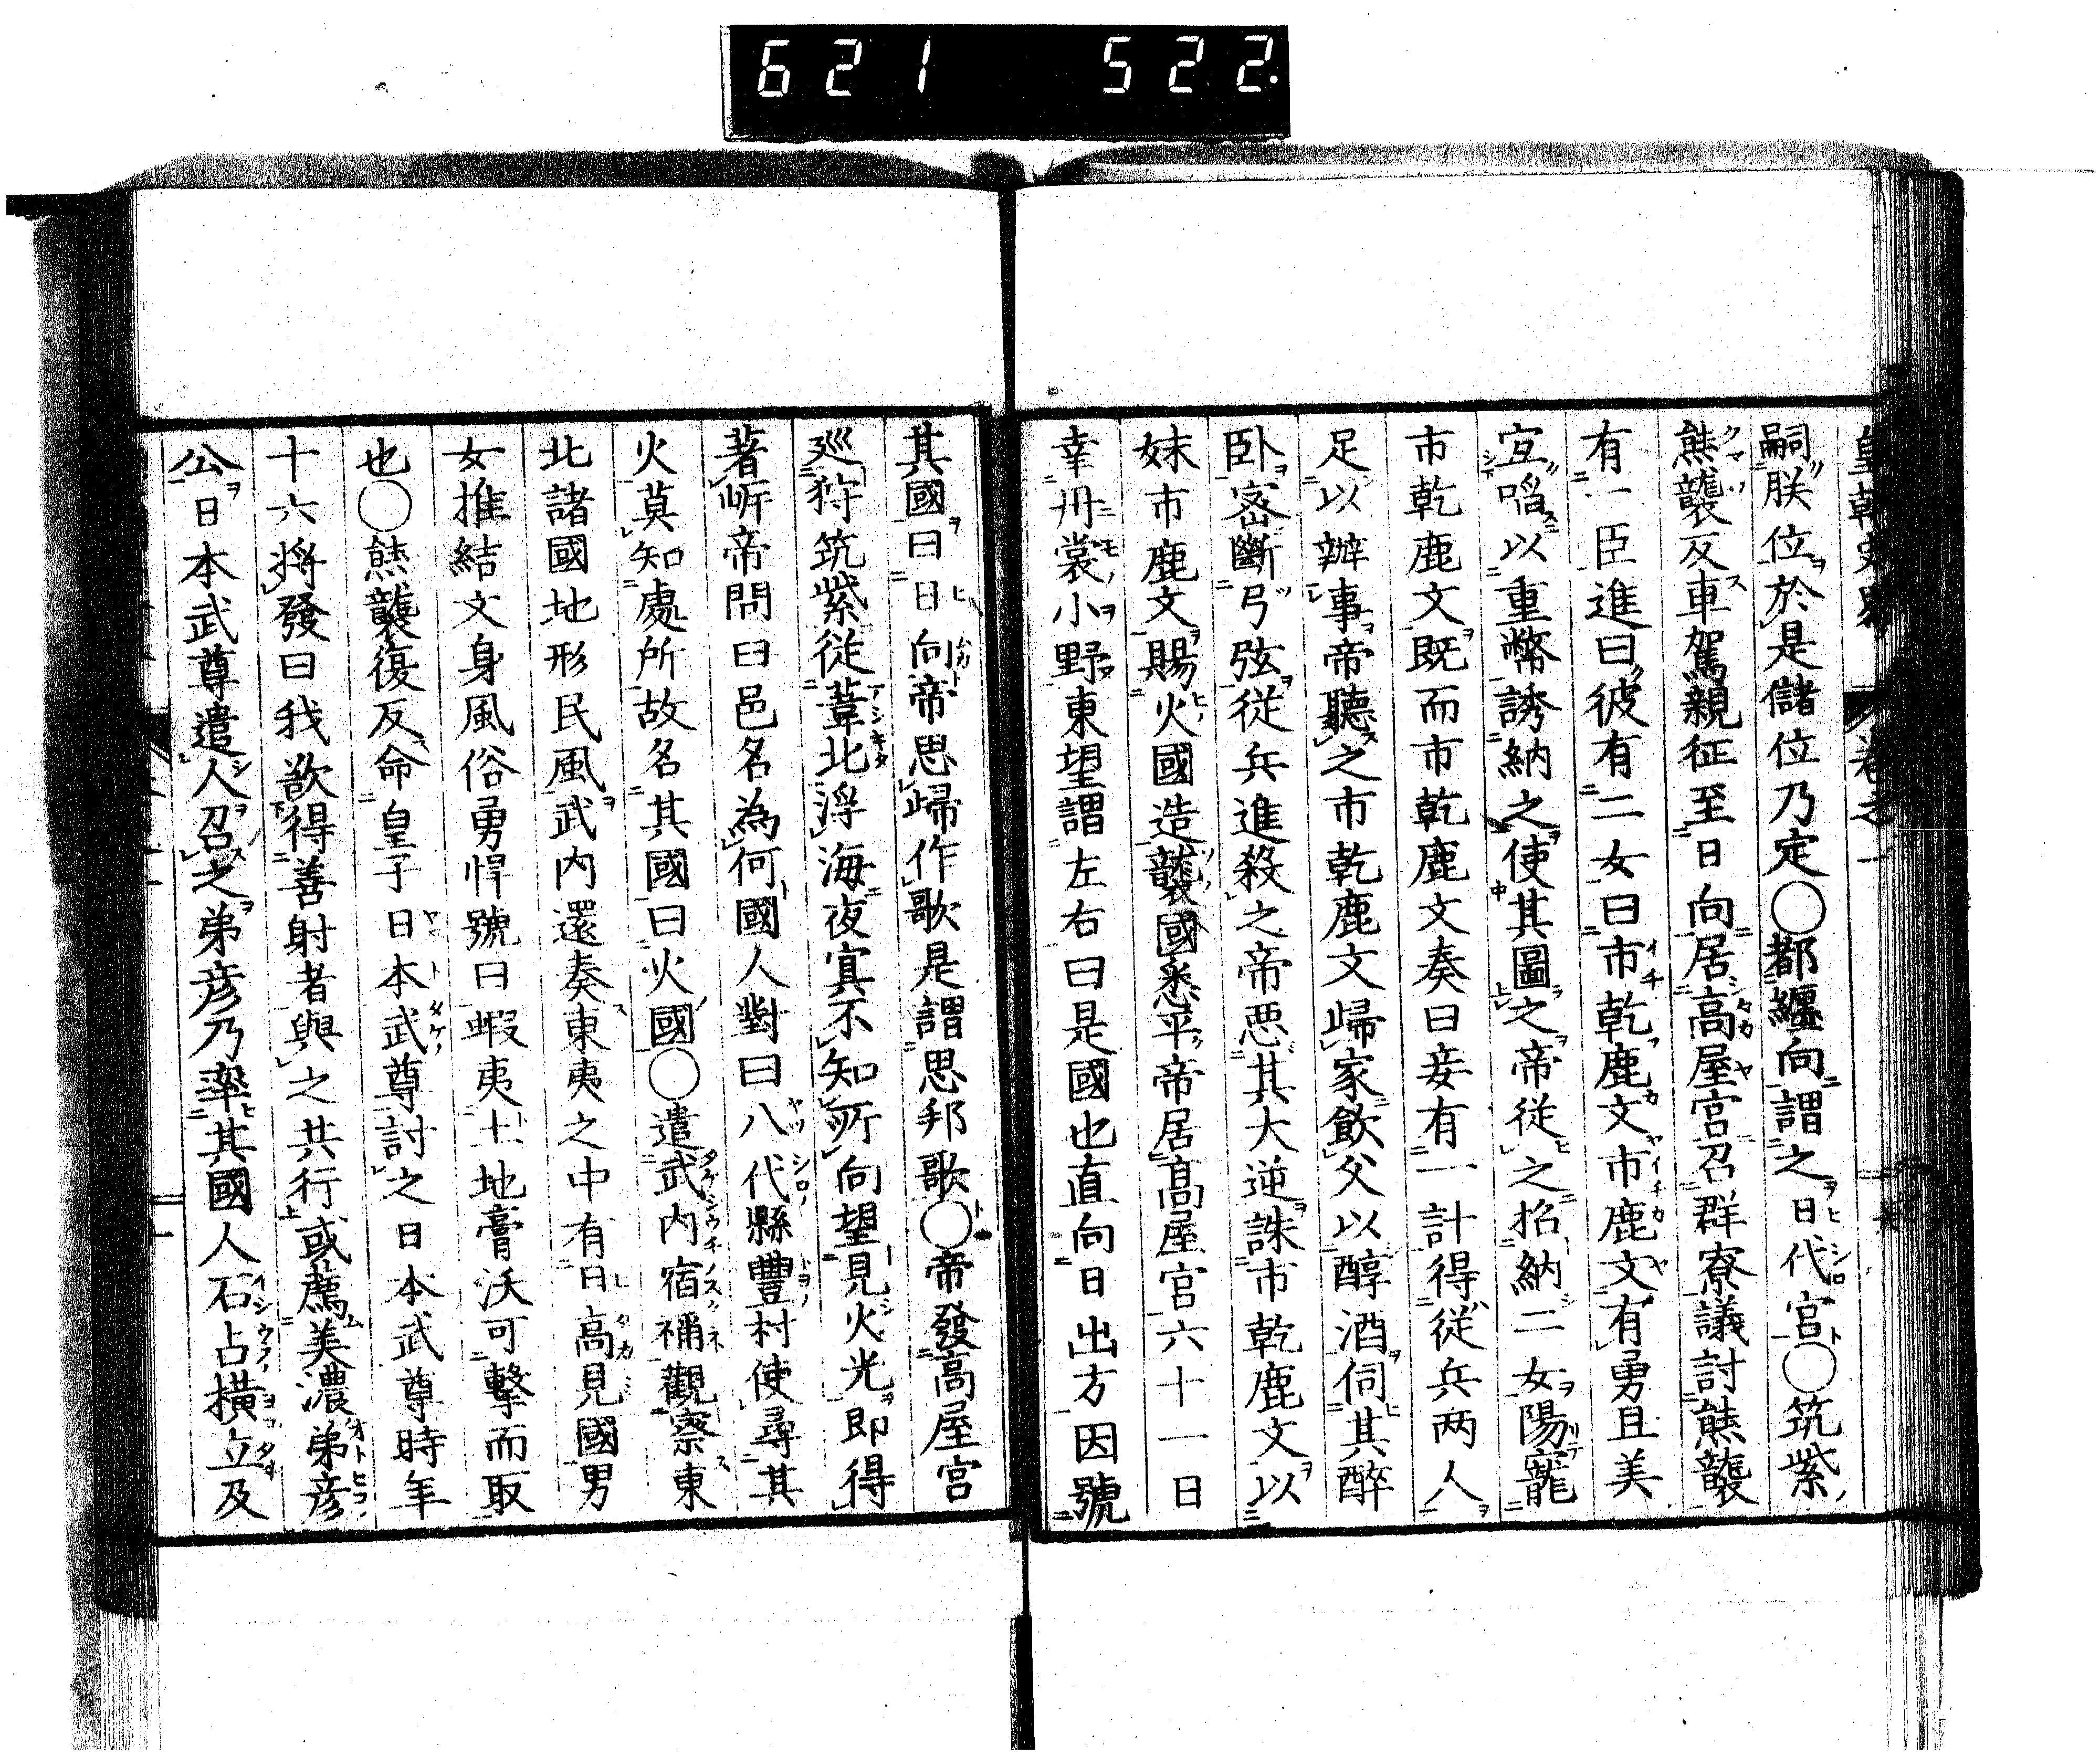 621 522
嗣朕位於是儲位乃定〇都纏向謂之日代宮〇筑紫
熊襲反車駕親征至日向居高屋宮召群寮議討熊襲
有一臣進曰彼有二女曰市乾鹿文市鹿文有勇且美
宜啗以重幣誘納之使其圖之帝從之招納二女陽寵
市乾鹿文既而市乾鹿文奏曰妾有一計得從兵两人
足以辦事帝聽之市乾鹿文歸家飲父以醇酒伺其醉
卧密斷弓弦從兵進殺之帝惡其大逆誅市乾鹿文以
妹市鹿文賜火國造襲國悉平帝居高屋宮六十一日
幸丹裳小野東望謂左右曰是國也直向日出方因號
其國曰日向帝思歸作歌是謂思邦歌〇帝發高屋宮
巡狩筑紫從葦北浮海夜冥不知所向望見火光即得
著岸帝問曰邑名為何國人對曰八代縣豐村使尋其
火莫知處所故名其國曰火國〇遣武内宿禰觀察東
北諸國地形民風武内還奏東夷之中有日高見國男
女推結文身風俗勇悍號曰蝦夷土地膏沃可擊而取
也〇熊襲復反命皇子日本武尊討之日本武尊時年
十六將發曰我欲得善射者與之共行或薦美濃弟彦
公日本武尊遣人召之弟彦乃率其國人石占横立及